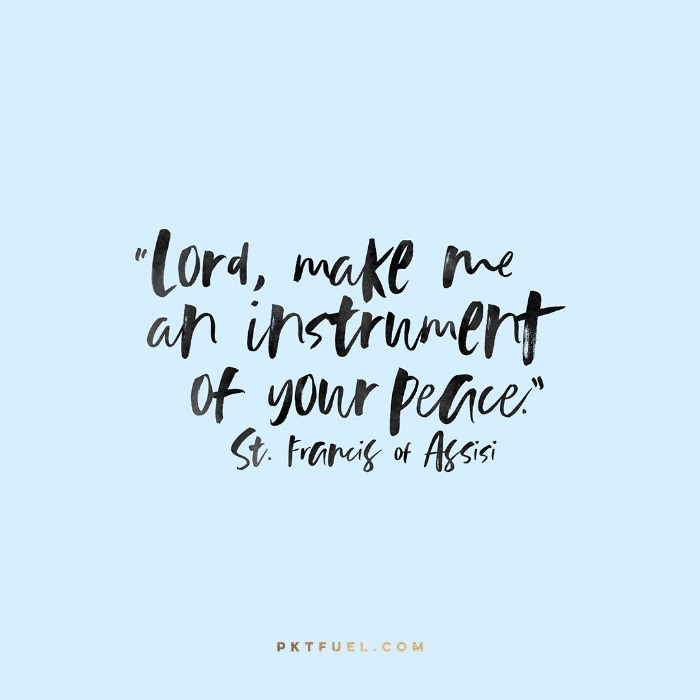 "Lord, make me
an instrument
of your peace."
St. Francis of Assisi
PKTFUEL.COM